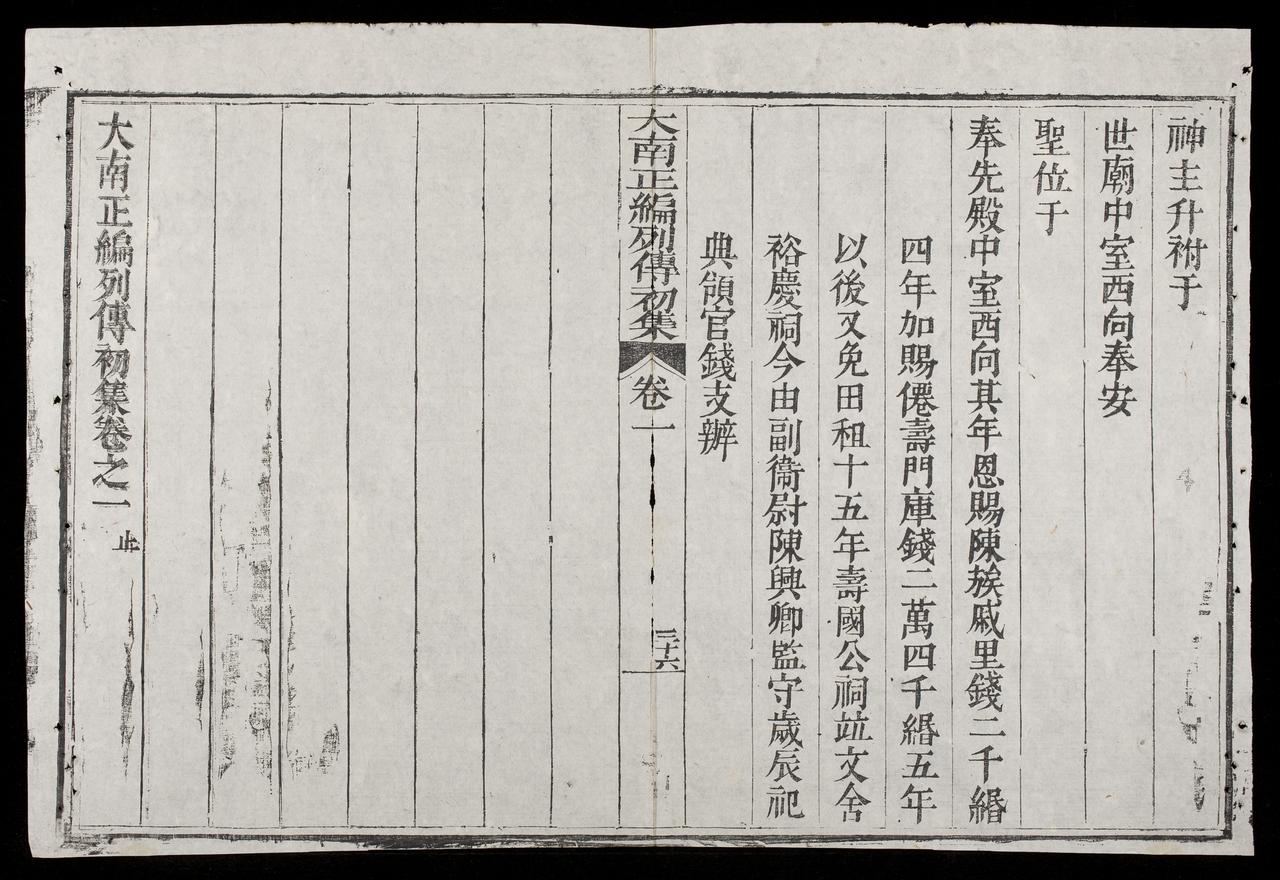 神主升祔于
世廟中室西向奉安
聖位于
奉先殿中室西向其年恩賜陳族戚里錢二千緡
四年加賜僊壽門庫錢二萬四千緡五年
以後又免田租十五年壽國公祠竝文舍
裕慶祠今由副衞尉陳興卿監守歲辰祀
典領官錢支辦
大南正編列傳初集
卷一
三十六
大南正編列傳初集卷之一
止